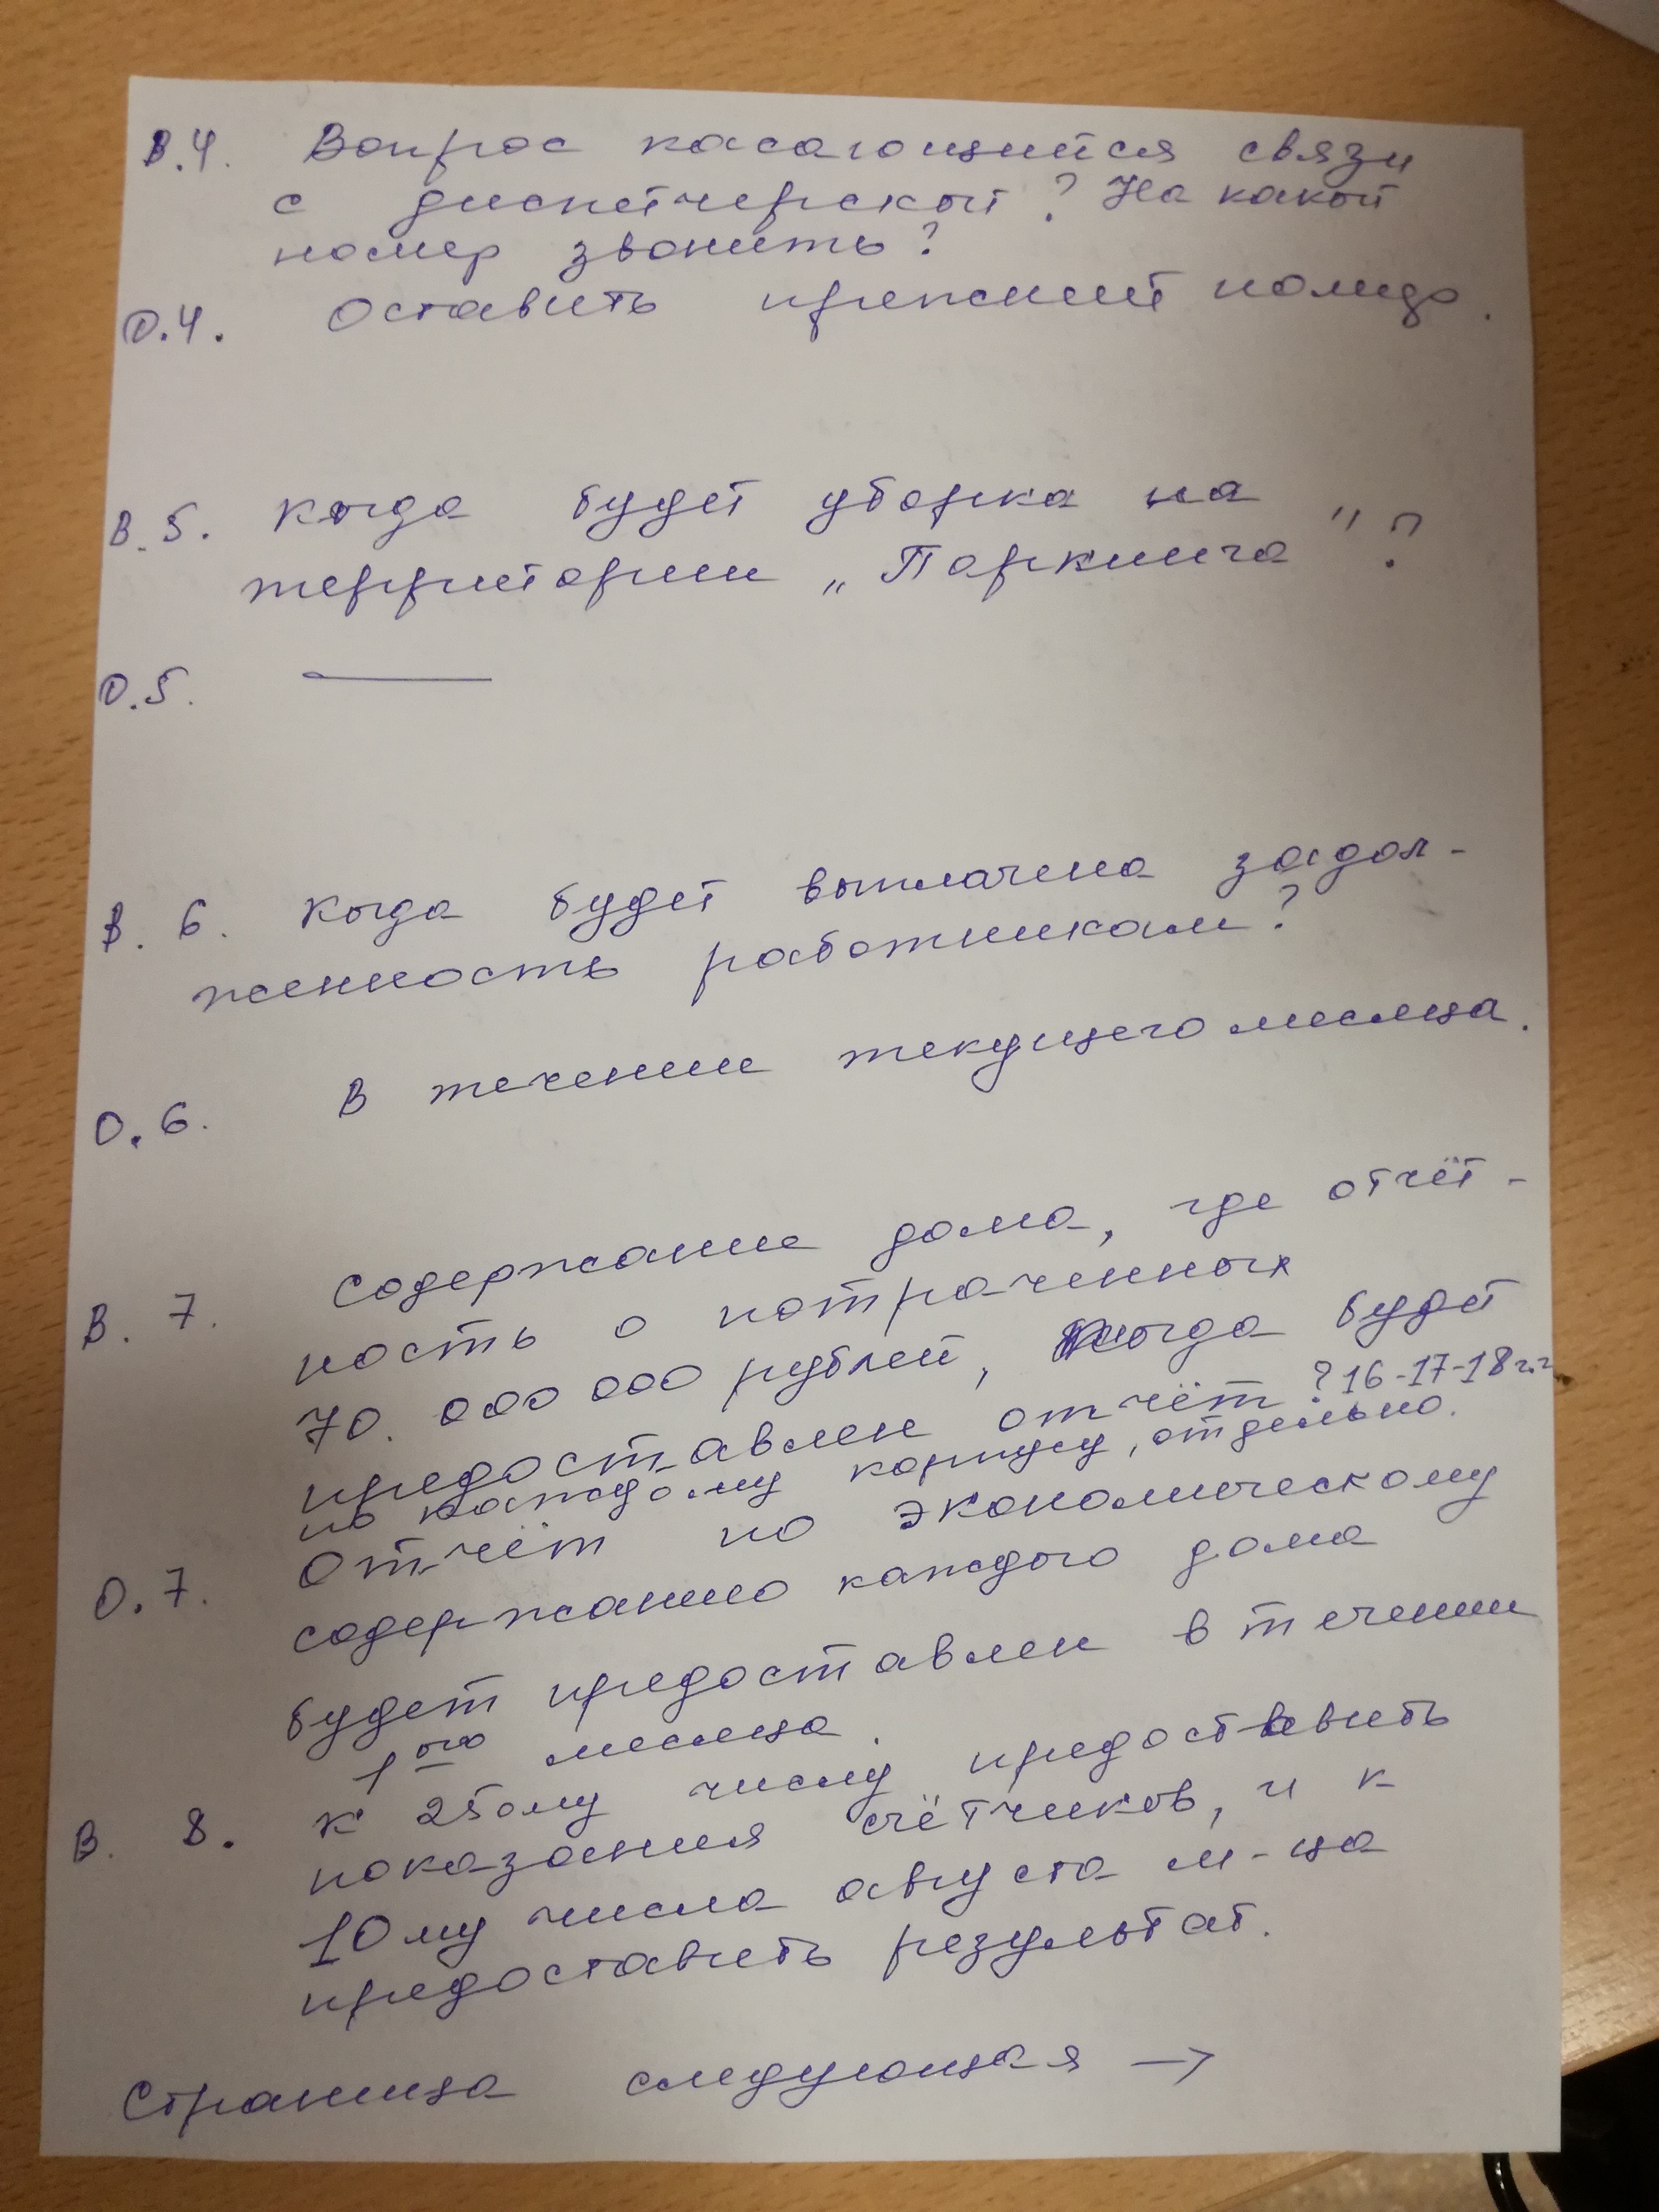 В.4. Вопрос касающийся связи
с диспетчерской? На какой
номер звонить?
О.4. Оставить прежний номер.
В.5. Когда будет уборка на
территории „Паркинга"?
О.5. —
В. 6. Когда будет выплачена задол-
женность работникам?
О.6. В течении текущего месяца.
В. 7. Содержание дома, где отчёт-
ность о потраченных
70. 000 000 рублей, Когда будет
предоставлен отчёт? 16-17-18 г.г
по каждому корпусу, отдельно.
О.7. Отчёт по экономическому
содержанию каждого дома
будет предоставлен в течении
1ого месяца.
В. 8. К 25ому числу предоставить
показания счётчиков, и к
10му числа августа м-ца
предоставить результат.
Страница следующая →